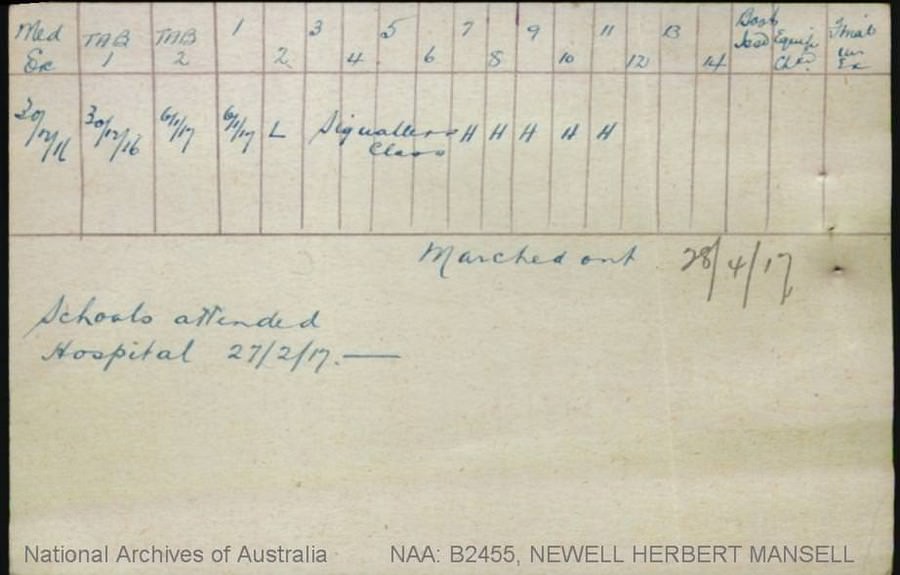 Med TAB TAB 1 3 5 7 9 11 13 Book Final
Ex 1 2 2 4 6 8 10 12 14 Equip Ex
30/12/16 30/12/16 6/1/17 6/1/17 L Signallers H H H H H
Class
Marched out 28/4/17
Schools attended
Hospital 27/2/17.—
National Archives of Australia NAA: B2455, NEWELL HERBERT MANSELL